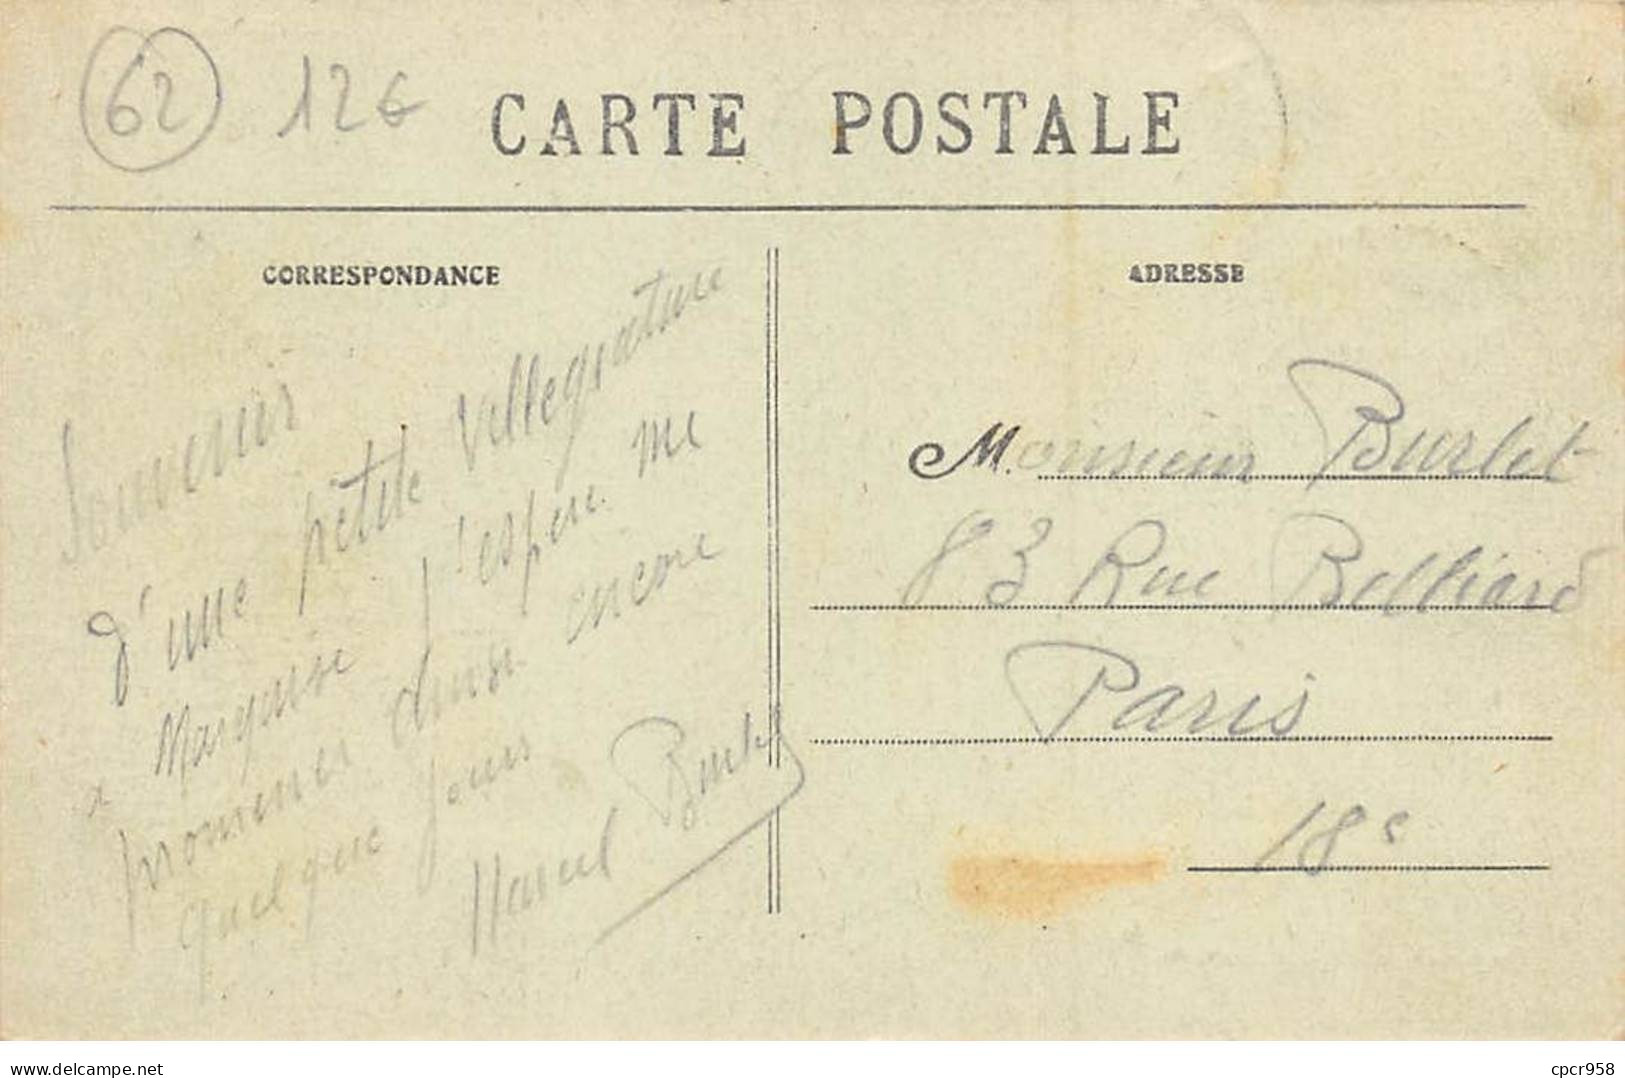 62 12€
CARTE POSTALE
CORRESPONDANCE
Souvenir
d'une petite Villegiature
a Marquise J'espère me
promener ainsi encore
quelque jours
Marcel Burlet
ADRESSE
Monsieur Burlet
83 Rue Belliard
Paris
18e
www.delcampe.net
cpcr958